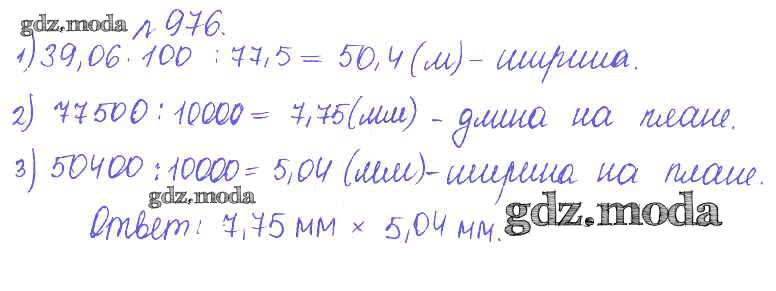 gdz.moda № 976.
1) 39,06 · 100 : 77,5 = 50,4 (м) - ширина.
2) 77500 : 10000 = 7,75 (мм) - длина на плане.
3) 50400 : 10000 = 5,04 (мм) - ширина на плане.
gdz.moda
Ответ: 7,75 мм × 5,04 мм.
gdz.moda